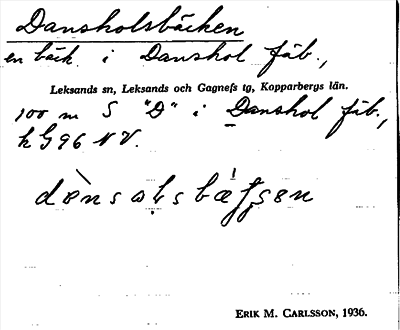 Dansholsbäcken
en bäck i Danshol fäb.,
Leksands sn, Leksands och Gagnefs tg, Kopparbergs län.
100 m S "D" i Danshol fäb.,
k G96 NV.
ERIK M. CARLSSON, 1936.